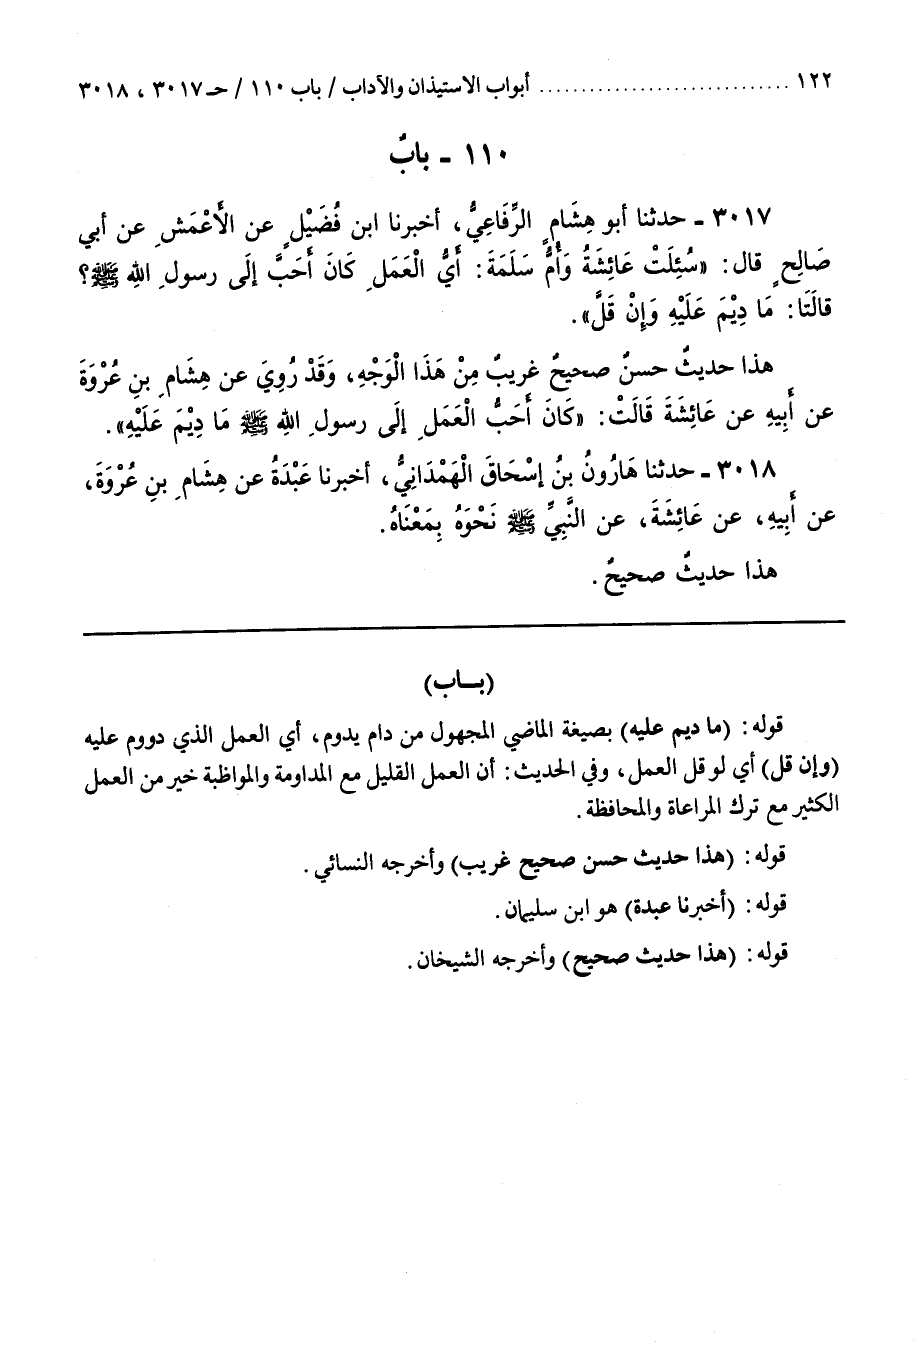 ١٢٢ .............................. أبواب الاستيذان والآداب / باب ١١٠ / حـ ٣٠١٧ ، ٣٠١٨
١١٠ ـ بابٌ
٣٠١٧ ـ حدثنا أبو هِشَامٍ الرِّفَاعِيُّ، أخبرنا ابن فُضَيْلٍ عن الأَعْمَشِ عن أبي
صَالِحٍ قال: «سُئِلَتْ عَائِشَةُ وَأُمُّ سَلَمَةَ: أَيُّ الْعَمَلِ كَانَ أَحَبَّ إلَى رسولِ اللهِ ﷺ؟
قالَتَا: مَا دِيْمَ عَلَيْهِ وَإنْ قَلَّ».
هذا حديثٌ حسنٌ صحيحٌ غريبٌ مِنْ هَذَا الْوَجْهِ، وَقَدْ رُوِيَ عن هِشَامِ بنِ عُرْوَةَ
عن أَبِيهِ عن عَائِشَةَ قَالَتْ: «كَانَ أَحَبُّ الْعَمَلِ إلَى رسولِ اللهِ ﷺ مَا دِيْمَ عَلَيْهِ».
٣٠١٨ ـ حدثنا هَارُونُ بنُ إسْحَاقَ الْهَمْدَانِيُّ، أخبرنا عَبْدَةُ عن هِشَامِ بنِ عُرْوَةَ،
عن أَبِيهِ، عن عَائِشَةَ، عن النَّبِيِّ ﷺ نَحْوَهُ بِمَعْنَاهُ.
هذا حديثٌ صحيحٌ.
(بـاب)
قوله: (ما ديم عليه) بصيغة الماضي المجهول من دام يدوم، أي العمل الذي دووم عليه
(وإن قل) أي لو قل العمل، وفي الحديث: أن العمل القليل مع المداومة والمواظبة خير من العمل
الكثير مع ترك المراعاة والمحافظة.
قوله: (هذا حديث حسن صحيح غريب) وأخرجه النسائي.
قوله: (أخبرنا عبدة) هو ابن سليمان.
قوله: (هذا حديث صحيح) وأخرجه الشيخان.